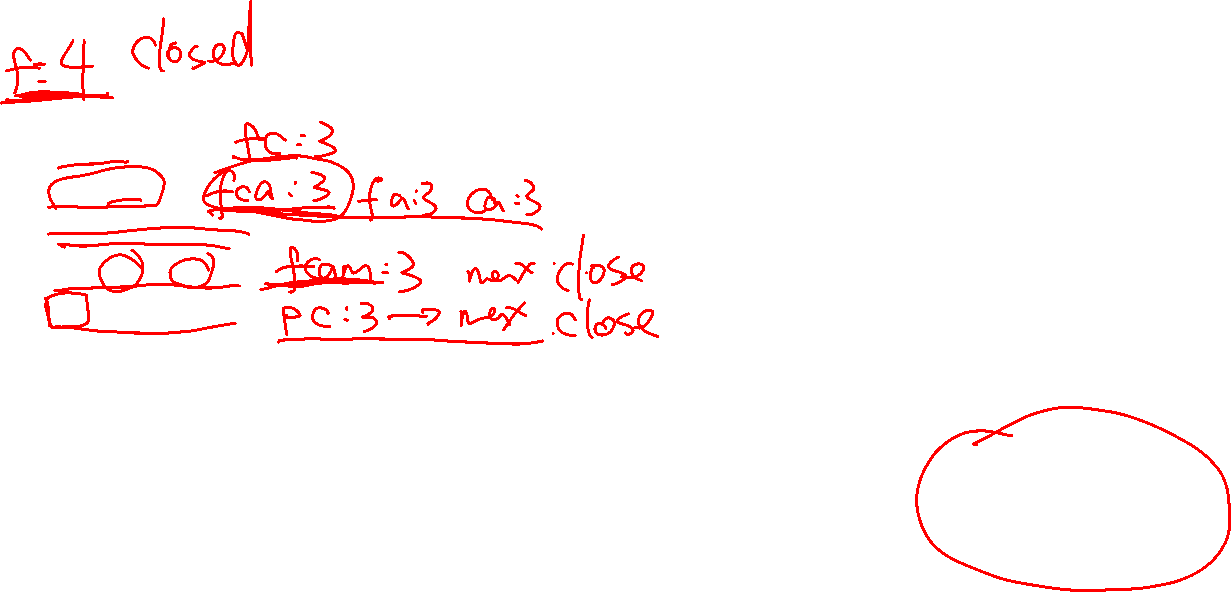 f:4 closed
fc:3
fca:3 fa:3 ca:3
fcam:3 max close
pc:3→max close